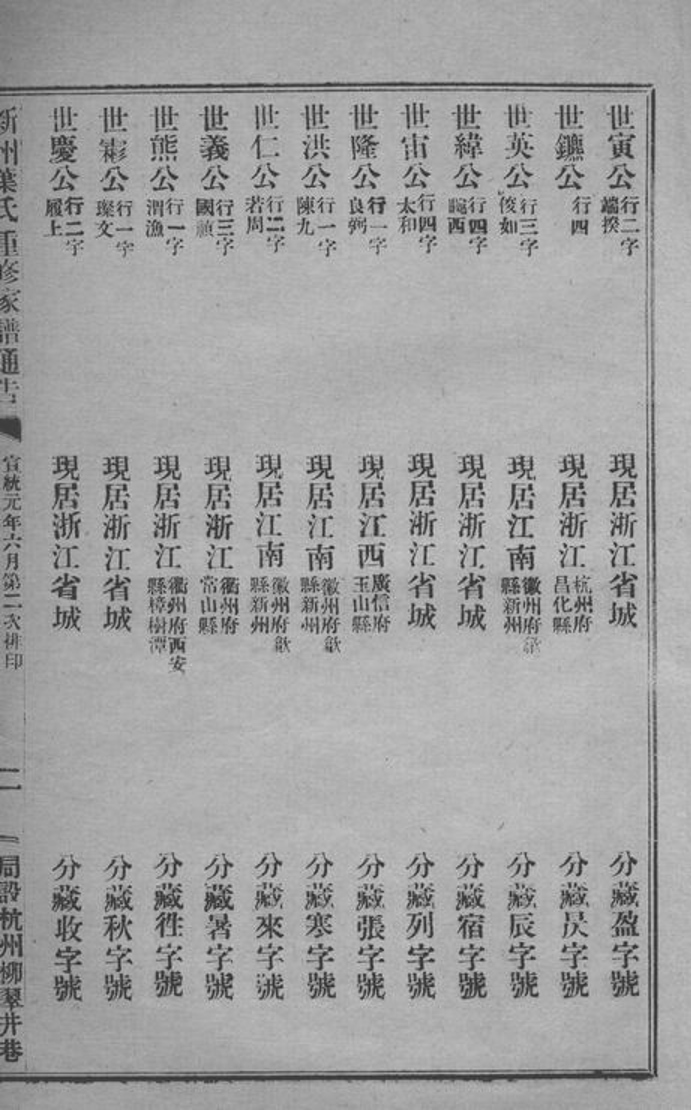 世寅公行二字端揆 現居浙江省城 分藏盈字號
世鑣公行四 現居浙江杭州府昌化縣 分藏昃字號
世英公行三字俊如 現居江南徽州府歙縣新州 分藏辰字號
世緯公行四字 現居浙江省城 分藏宿字號
世宙公行四字太和 現居浙江省城 分藏列字號
世隆公行一字良弼 現居江西廣信府玉山縣 分藏張字號
世洪公行一字陳九 現居江南徽州府歙縣新州 分藏寒字號
世仁公行二字若周 現居江南徽州府歙縣新州 分藏來字號
世義公行三字國禎 現居浙江衢州府常山縣 分藏暑字號
世熊公行一字渭漁 現居浙江衢州府西安縣樟樹潭 分藏徃字號
世公行一字璨文 現居浙江省城 分藏秋字號
世慶公行二字履上 現居浙江省城 分藏收字號
新州葉氏重修家譜通告 宣統元年六月第二次排印 二 局設杭州柳翠井巷